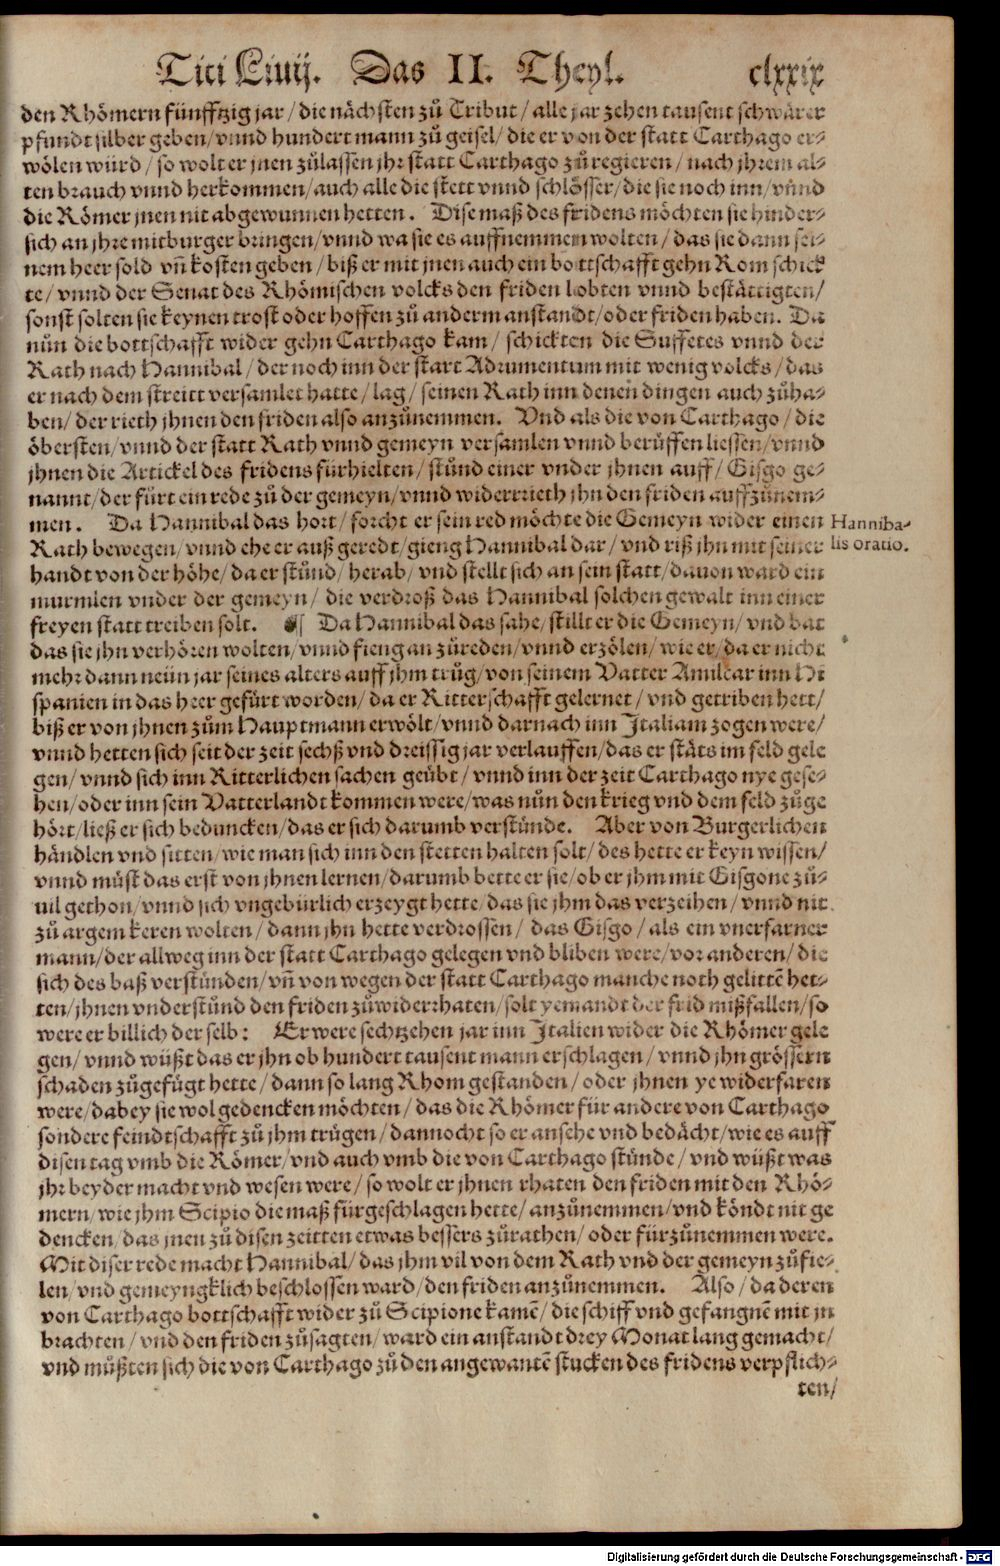 Titi Liuij. Das II. Theyl. clxxix
den Rhömern fünfftzig jar / die nächsten zů Tribut / alle jar zehen tausent schwärer
pfundt silber geben / vnnd hundert mann zů geisel / die er von der statt Carthago er⸗
wölen würd / so wolt er jnen zůlassen jhr statt Carthago zů regieren / nach jhrem al⸗
ten brauch vnnd herkommen / auch alle die stett vnnd schlösser / die sie noch inn / vnnd
die Römer jnen nit abgewunnen hetten. Dise maß des fridens möchten sie hinder⸗
sich an jhre mitburger bringen / vnnd wa sie es auffnemmen wolten / das sie dann sei⸗
nem heer sold vñ kosten geben / biß er mit jnen auch ein bottschafft gehn Rom schick
te / vnnd der Senat des Rhömischen volcks den friden lobten vnnd bestättigten /
sonst solten sie keynen trost oder hoffen zů anderm anstandt / oder friden haben. Da
nůn die bottschafft wider gehn Carthago kam / schickten die Suffetes vnnd der
Rath nach Hannibal / der noch inn der statt Adrumentum mit wenig volcks / das
er nach dem streitt versamlet hatte / lag / seinen Rath inn denen dingen auch zůha⸗
ben / der rieth jhnen den friden also anzůnemmen. Vnd als die von Carthago / die
öbersten / vnnd der statt Rath vnnd gemeyn versamlen vnnd berůffen liessen / vnnd
jhnen die Artickel des fridens fürhielten / stůnd einer vnder jhnen auff / Gisgo ge⸗
nannt / der fürt ein rede zů der gemeyn / vnnd widerrrieth jhn den friden auffzůnem⸗
men. Da Hannibal das hort / forcht er sein red möchte die Gemeyn wider einen
Rath bewegen / vnnd ehe er auß geredt / gieng Hannibal dar / vnd riß jhn mit seiner
Hanniba⸗
lis oratio.
handt von der höhe / da er stůnd / herab / vnd stellt sich an sein statt / dauon ward ein
murmlen vnder der gemeyn / die verdroß das Hannibal solchen gewalt inn einer
freyen statt treiben solt. ¶ Da Hannibal das sahe / stillt er die Gemeyn / vnd bat
das sie jhn verhören wolten / vnnd fieng an zůreden / vnnd erzölen / wie er / da er nicht
mehr dann neün jar seines alters auff jhm trůg / von seinem Vatter Amilcar inn Hi
spanien in das heer gefürt worden / da er Ritterschafft gelernet / vnd getriben hett /
biß er von jhnen zům Hauptmann erwölt / vnnd darnach inn Italiam zogen were /
vnnd hetten sich seit der zeit sechß vnd dreissig jar verlauffen / das er stäts im feld gele
gen / vnnd sich inn Ritterlichen sachen geübt / vnnd inn der zeit Carthago nye gese⸗
hen / oder inn sein Vatterlandt kommen were / was nůn den krieg vnd dem feld zůge
hört / ließ er sich beduncken / das er sich darumb verstünde. Aber von Burgerlichen
händlen vnd sitten / wie man sich inn den stetten halten solt / des hette er keyn wissen /
vnnd müst das erst von jhnen lernen / darumb bette er sie / ob er jhm mit Gisgone zů⸗
uil gethon / vnnd sich vngebürlich erzeygt hette / das sie jhm das verzeihen / vnnd nit
zů argem keren wolten / dann jhn hette verdrossen / das Gisgo / als ein vnerfarner
mann / der allweg inn der statt Carthago gelegen vnd bliben were / vor anderen / die
sich des baß verstünden / vñ von wegen der statt Carthago manche noth gelittē het⸗
ten / jhnen vnderstünd den friden zůwiderrhaten / solt yemandt der frid mißfallen / so
were er billich der selb: Er were sechtzehen jar inn Italien wider die Rhömer gele
gen / vnnd wüßt das er jhn ob hundert tausent mann erschlagen / vnnd jhn grössern
schaden zůgefügt hette / dann so lang Rhom gestanden / oder jhnen ye widerfaren
were / dabey sie wol gedencken möchten / das die Rhömer für andere von Carthago
sondere feindtschafft zů jhm trügen / dannocht so er ansehe vnd bedächt / wie es auff
disen tag vmb die Römer / vnd auch vmb die von Carthago stünde / vnd wüßt was
jhr beyder macht vnd wesen were / so wolt er jhnen rhaten den friden mit den Rhö⸗
mern / wie jhm Scipio die maß fürgeschlagen hette / anzůnemmen / vnd köndt nit ge
dencken / das jnen zů disen zeitten etwas bessers zůrathen / oder fürzůnemmen were.
Mit diser rede macht Hannibal / das jhm vil von dem Rath vnd der gemeyn zůfie⸗
len / vnd gemeyngklich beschlossen ward / den friden anzůnemmen. Also / da deren
von Carthago bottschafft wider zů Scipione kamē / die schiff vnd gefangnē mit jn
brachten / vnd den friden zůsagten / ward ein anstandt drey Monat lang gemacht /
vnd müßten sich die von Carthago zů den angewantē stucken des fridens verpflich⸗
ten /
Digitalisierung gefördert durch die Deutsche Forschungsgemeinschaft - DFG